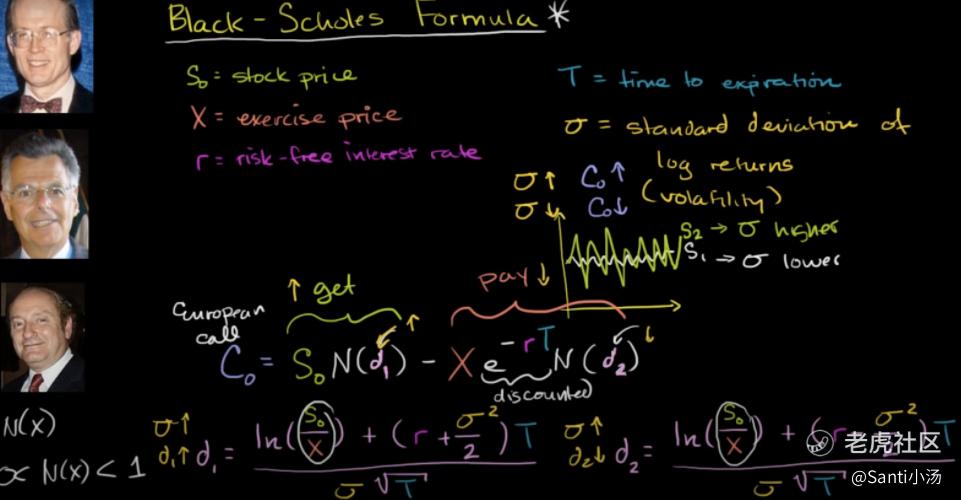 Black-Scholes Formula *
S₀ = stock price
X = exercise price
r = risk-free interest rate
T = time to expiration
σ = standard deviation of
log returns
(volatility)
σ ↑ C₀ ↑
σ ↓ C₀ ↓
S₂ → σ higher
S₁ → σ lower
↑ get
pay ↓
European
call
C₀ = S₀ N(d₁) - X e^-rT N(d₂)
discounted
N(x)
N(x) < 1
σ ↑
d₁ ↑ d₁ = ln(S₀/X) + (r + σ²/2) T / σ √T
σ ↑
d₂ ↓ d₂ = ln(S₀/X) + (r σ²/2) T / σ √T
老虎社区
@Santi小汤